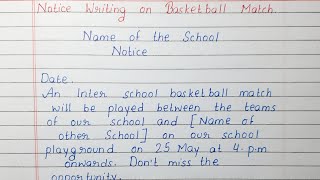 Notice Writing on Basketball Match.
Name of the School
Notice
Date.
An Inter school basketball match
will be played between the teams
of our school and [Name of
other School] on our school
playground on 25 May at 4. p.m
onwards. Don't miss the
opportunity.